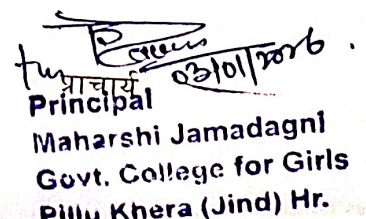 03/01/2026.
प्राचार्य
Principal
Maharshi Jamadagni
Govt. College for Girls
Pillu Khera (Jind) Hr.